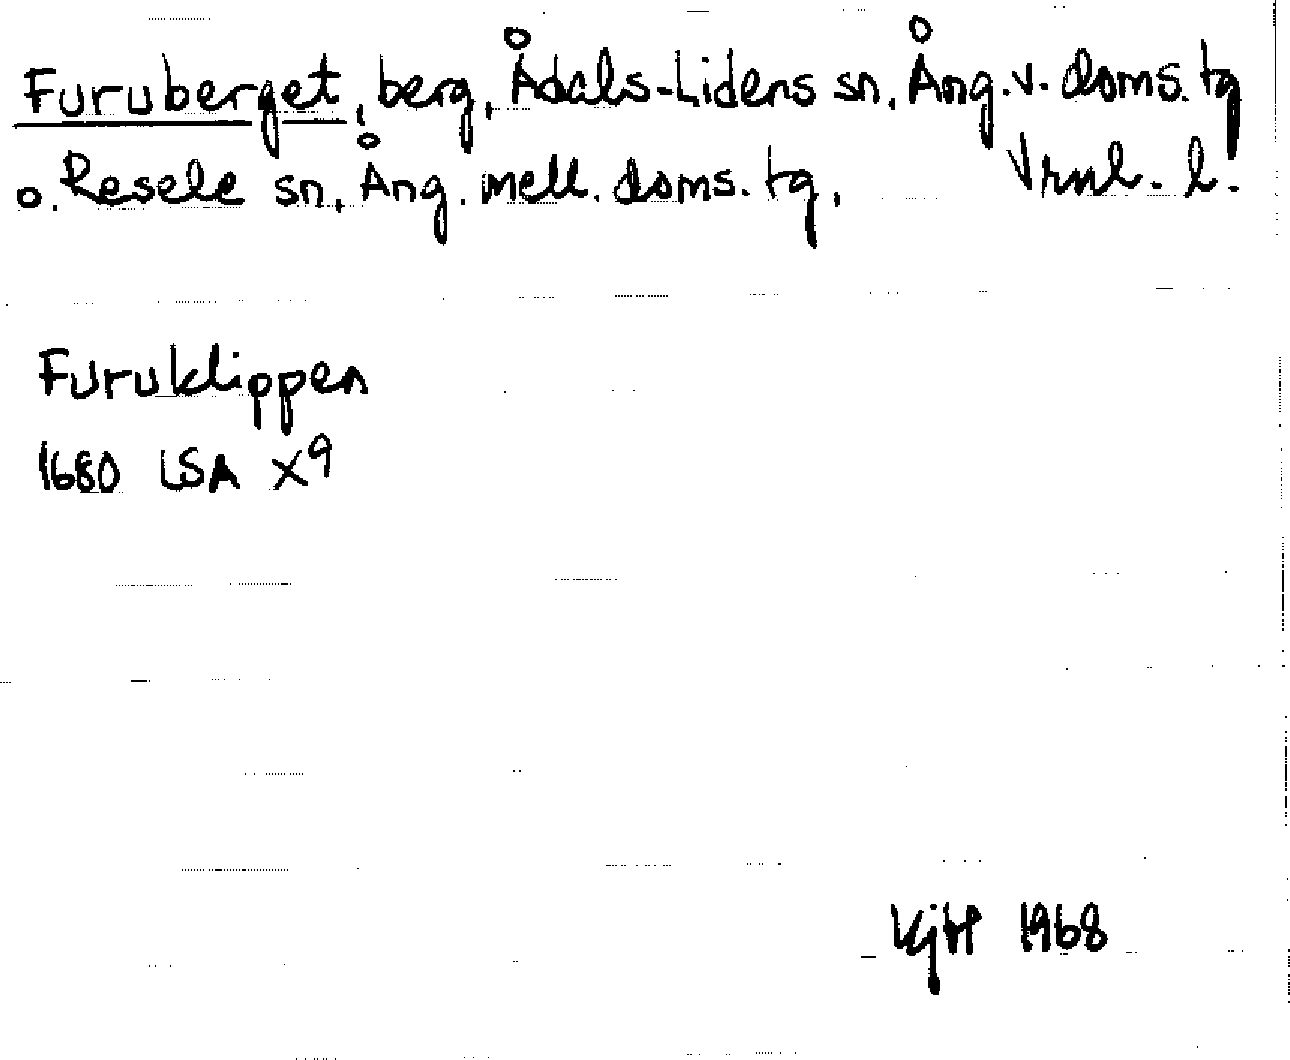 Furuberget, berg, Ådals-Lidens sn, Ång. v. doms. tg
o. Resele sn, Ång. mell. doms. tg, Vrnl. l.
Furuklippen
1680 LSA X9
1968